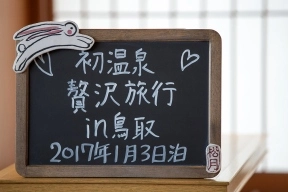 初温泉
贅沢旅行
in鳥取
2017年1月3日泊